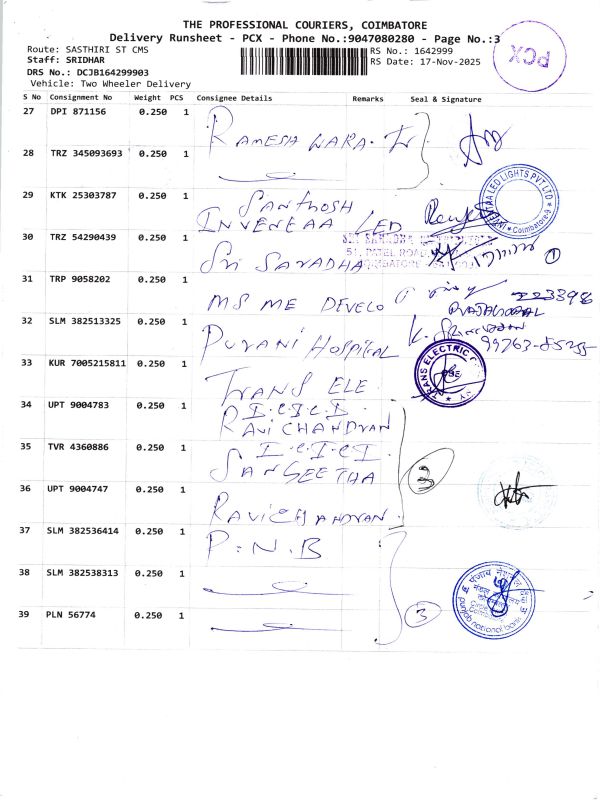 THE PROFESSIONAL COURIERS, COIMBATORE
Delivery Runsheet - PCX - Phone No.:9047080280 - Page No.:3
Route: SASTHIRI ST CMS
RS No.: 1642999
Staff: SRIDHAR
RS Date: 17-Nov-2025
DRS No.: DCJB164299903
Vehicle: Two Wheeler Delivery
PCX
S No Consignment No Weight PCS Consignee Details Remarks Seal & Signature
27 DPI 871156 0.250 1
RAMESH WARA. Tr
28 TRZ 345093693 0.250 1
29 KTK 25303787 0.250 1 SANTHOSH
INVENEAA LED
LED LIGHTS PVT LTD
Coimbatore
30 TRZ 54290439 0.250 1 Sri SARADHA
51, PATEL ROAD
COIMBATORE
①
31 TRP 9058202 0.250 1 MS ME DEVELO
223398
RAJAGOPAL
32 SLM 382513325 0.250 1 PURANI HOSPITAL
K.
99763-85255
33 KUR 7005215811 0.250 1 TRANS ELE
TRANS ELECTRIC
34 UPT 9004783 0.250 1 I.C.I.C.I.
RAVICHANDRAN
35 TVR 4360886 0.250 1 I.C.I.C.I.
SANGEETHA
3
36 UPT 9004747 0.250 1 RAVICHANDRAN.
37 SLM 382536414 0.250 1 P.N.B
38 SLM 382538313 0.250 1
पंजाब नैशनल बैंक
punjab national bank
39 PLN 56774 0.250 1
3